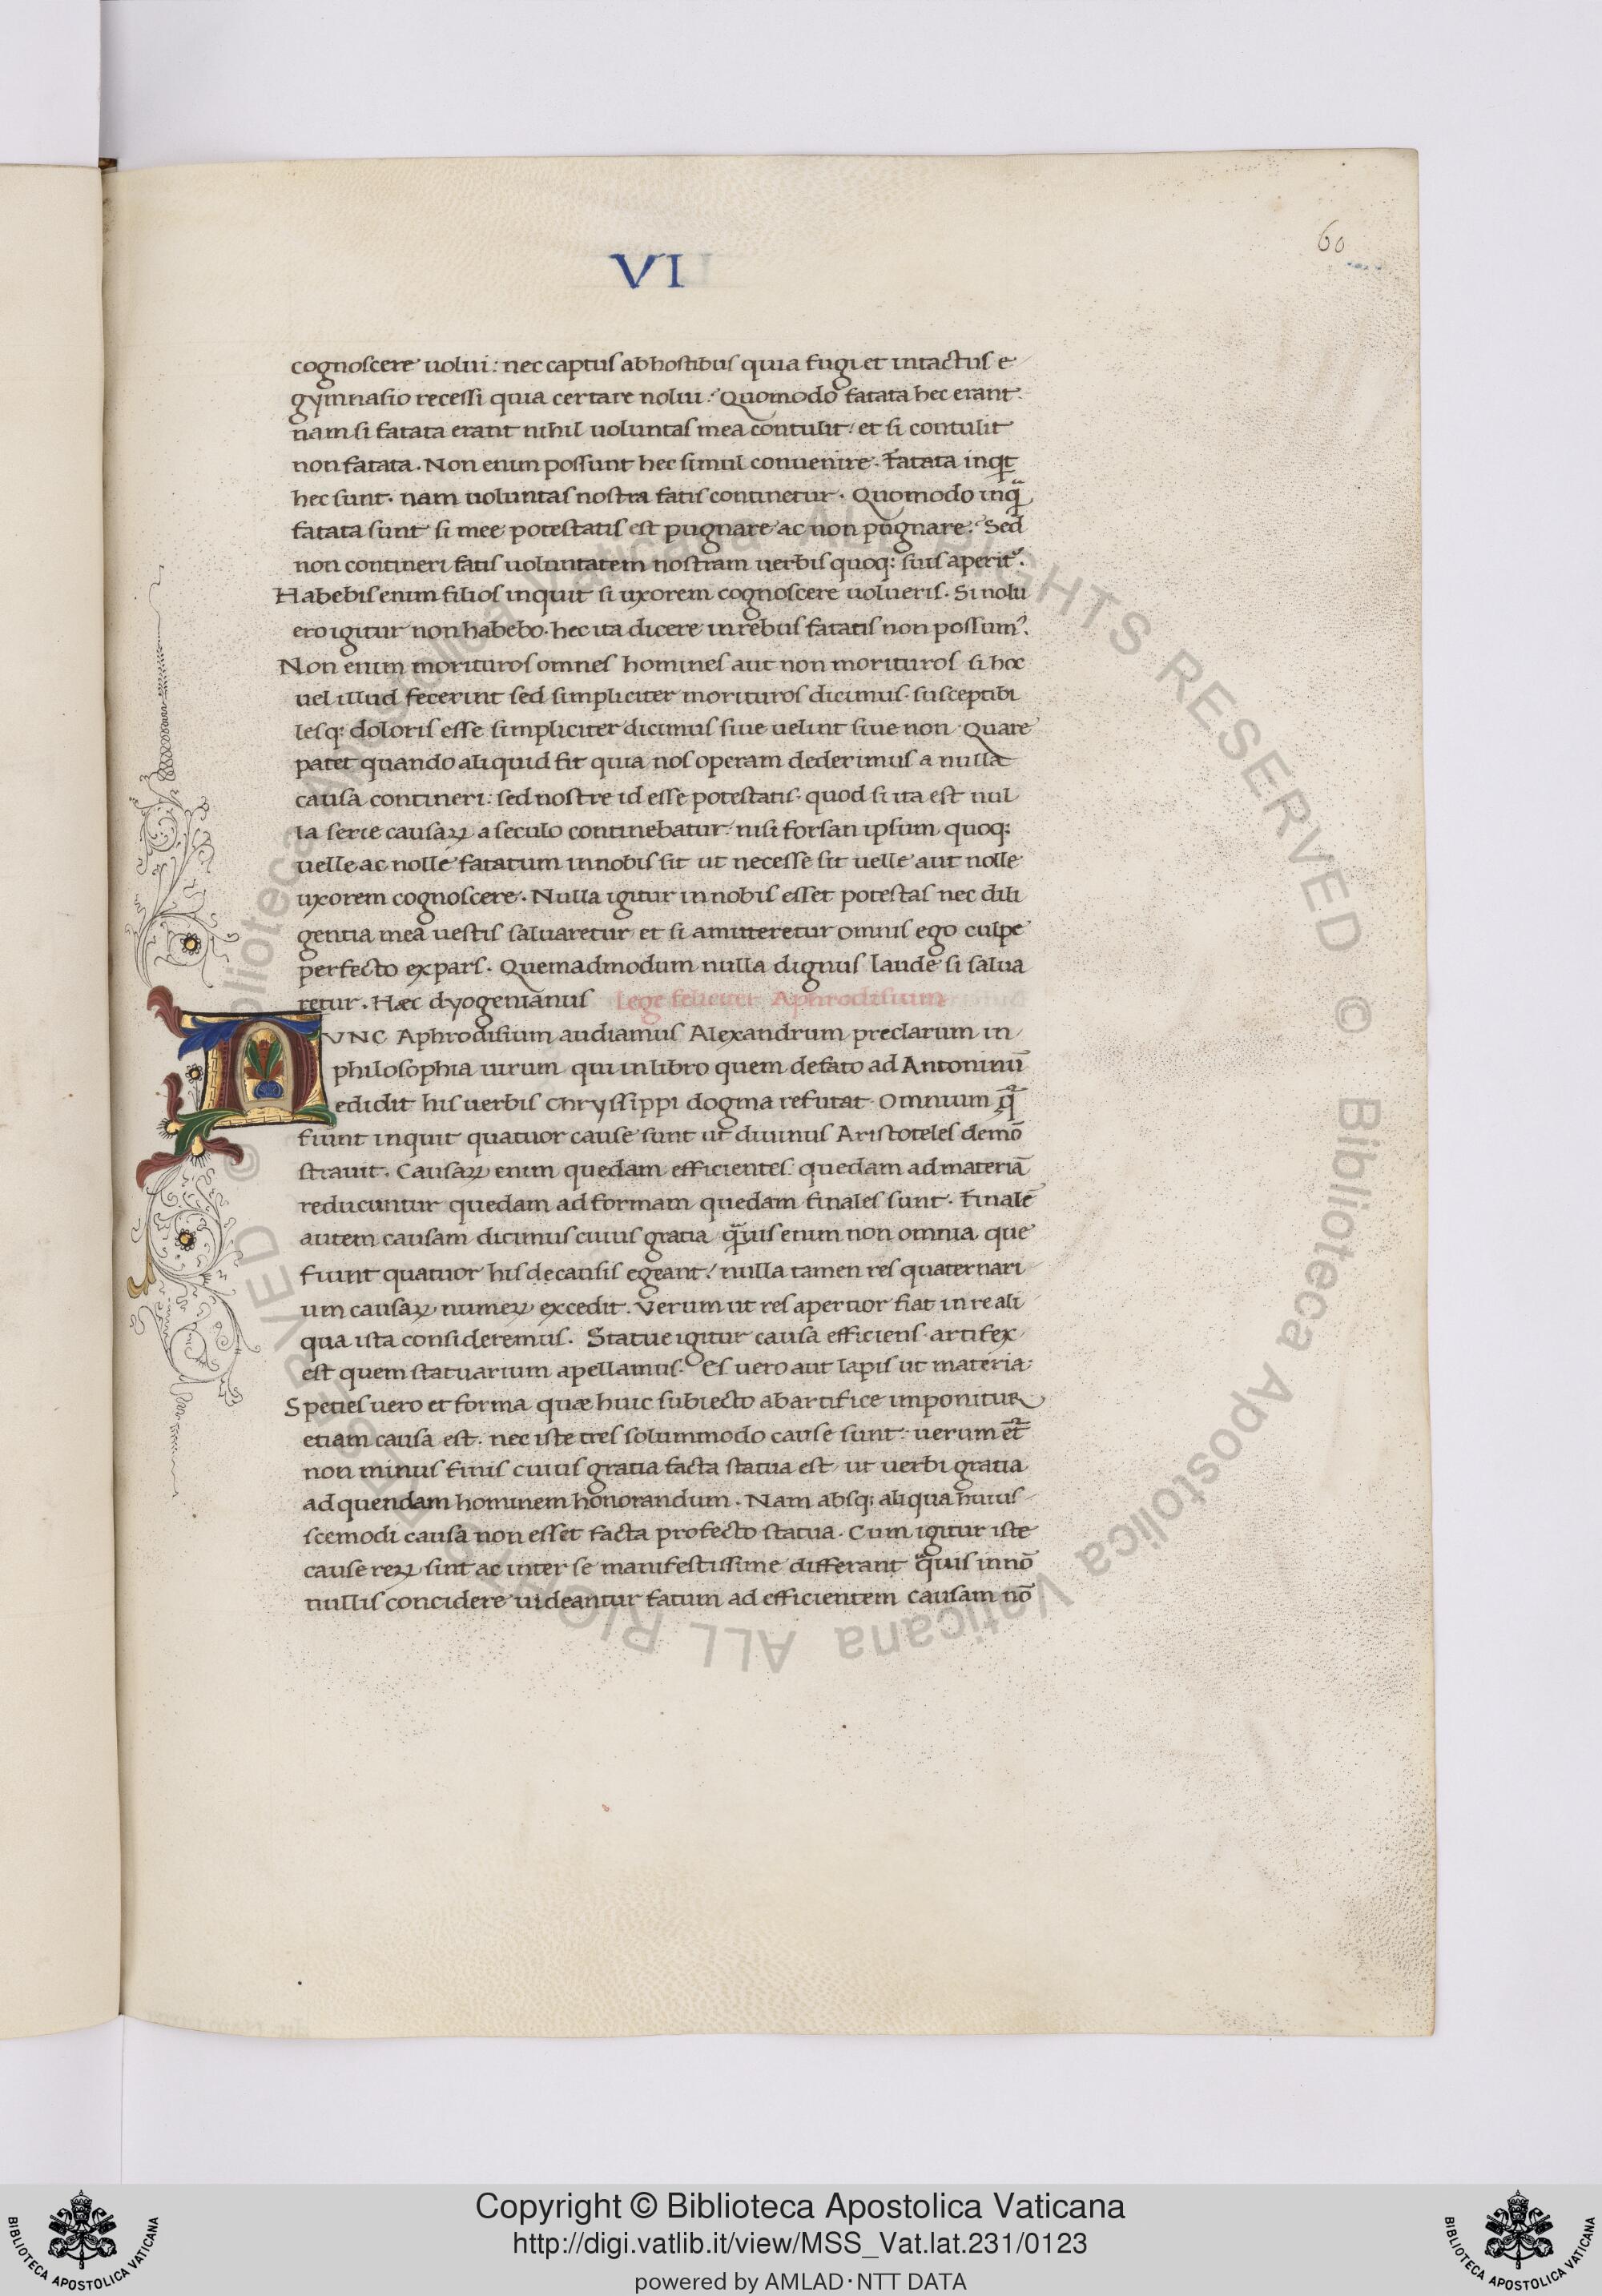 60
VI
cognoscere uolui: nec captus ab hostibus quia fugi et intactus e
gymnasio recessi quia certare nolui. Quomodo fatata hec erant.
nam si fatata erant nihil uoluntas mea contulit et si contulit
non fatata. Non enim possunt hec simul conuenire. Fatata inqt
hec sunt. nam uoluntas nostra fatis continetur. Quomodo inq̃
fatata sunt si mee potestatis est pugnare ac non pugnare. Sed
non contineri fatis uoluntatem nostram uerbis quoq: suis aperit᷑.
Habebis enim filios inquit si uxorem cognoscere uolueris. Si nolu
ero igitur non habebo. hec ita dicere in rebus fatatis non possum᷒.
Non enim morituros omnes homines aut non morituros si hoc
uel illud fecerint sed simpliciter morituros dicimus. susceptibi
lesq: doloris esse simpliciter dicimus siue uelint siue non Quare
patet quando aliquid fit quia nos operam dederimus a nulla
causa contineri: sed nostre id esse potestatis. quod si ita est nul
la serie causaꝝ a seculo continebatur. nisi forsan ipsum quoq:
uelle ac nolle fatatum in nobis sit ut necesse sit uelle aut nolle
uxorem cognoscere. Nulla igitur in nobis esset potestas nec dili
gentia mea uestis saluaretur et si amitteretur omnis ego culpe
perfecto expars. Quemadmodum nulla dignus laude si salua
retur. Hæc dyogenianus Lege feliciter Aphrodisium
NVNC Aphrodisium audiamus Alexandrum preclarum in
philosophia uirum qui in libro quem de fato ad Antoninū
edidit his uerbis chryssippi dogma refutat. Omnium q̃
fiunt inquit quatuor cause sunt ut diuinus Aristoteles demō
strauit. Causaꝝ enim quedam efficientes. quedam ad materiā
reducuntur quedam ad formam quedam finales sunt. Finalē
autem causam dicimus cuius gratia q̃uis enim non omnia que
fiunt quatuor his de causis egeant. nulla tamen res quaternari
um causaꝝ numeꝝ excedit. Verum ut res apertior fiat in re ali
qua ista consideremus. Statue igitur causa efficiens. artifex
est quem statuarium apellamus. Es uero aut lapis ut materia.
Speties uero et forma quæ huic subiecto ab artifice imponitur
etiam causa est. nec iste tres solummodo cause sunt. uerum et̃
non minus finis cuius gratia facta statua est ut uerbi gratia
ad quendam hominem honorandum. Nam absq: aliqua huius
scemodi causa non esset facta profecto statua. Cum igitur iste
cause reꝝ sint ac inter se manifestissime differant q̃uis in nō
nullis concidere uideantur fatum ad efficientem causam nō
Copyright © Biblioteca Apostolica Vaticana
http://digi.vatlib.it/view/MSS_Vat.lat.231/0123
powered by AMLAD·NTT DATA
BIBLIOTECA APOSTOLICA VATICANA
BIBLIOTECA APOSTOLICA VATICANA